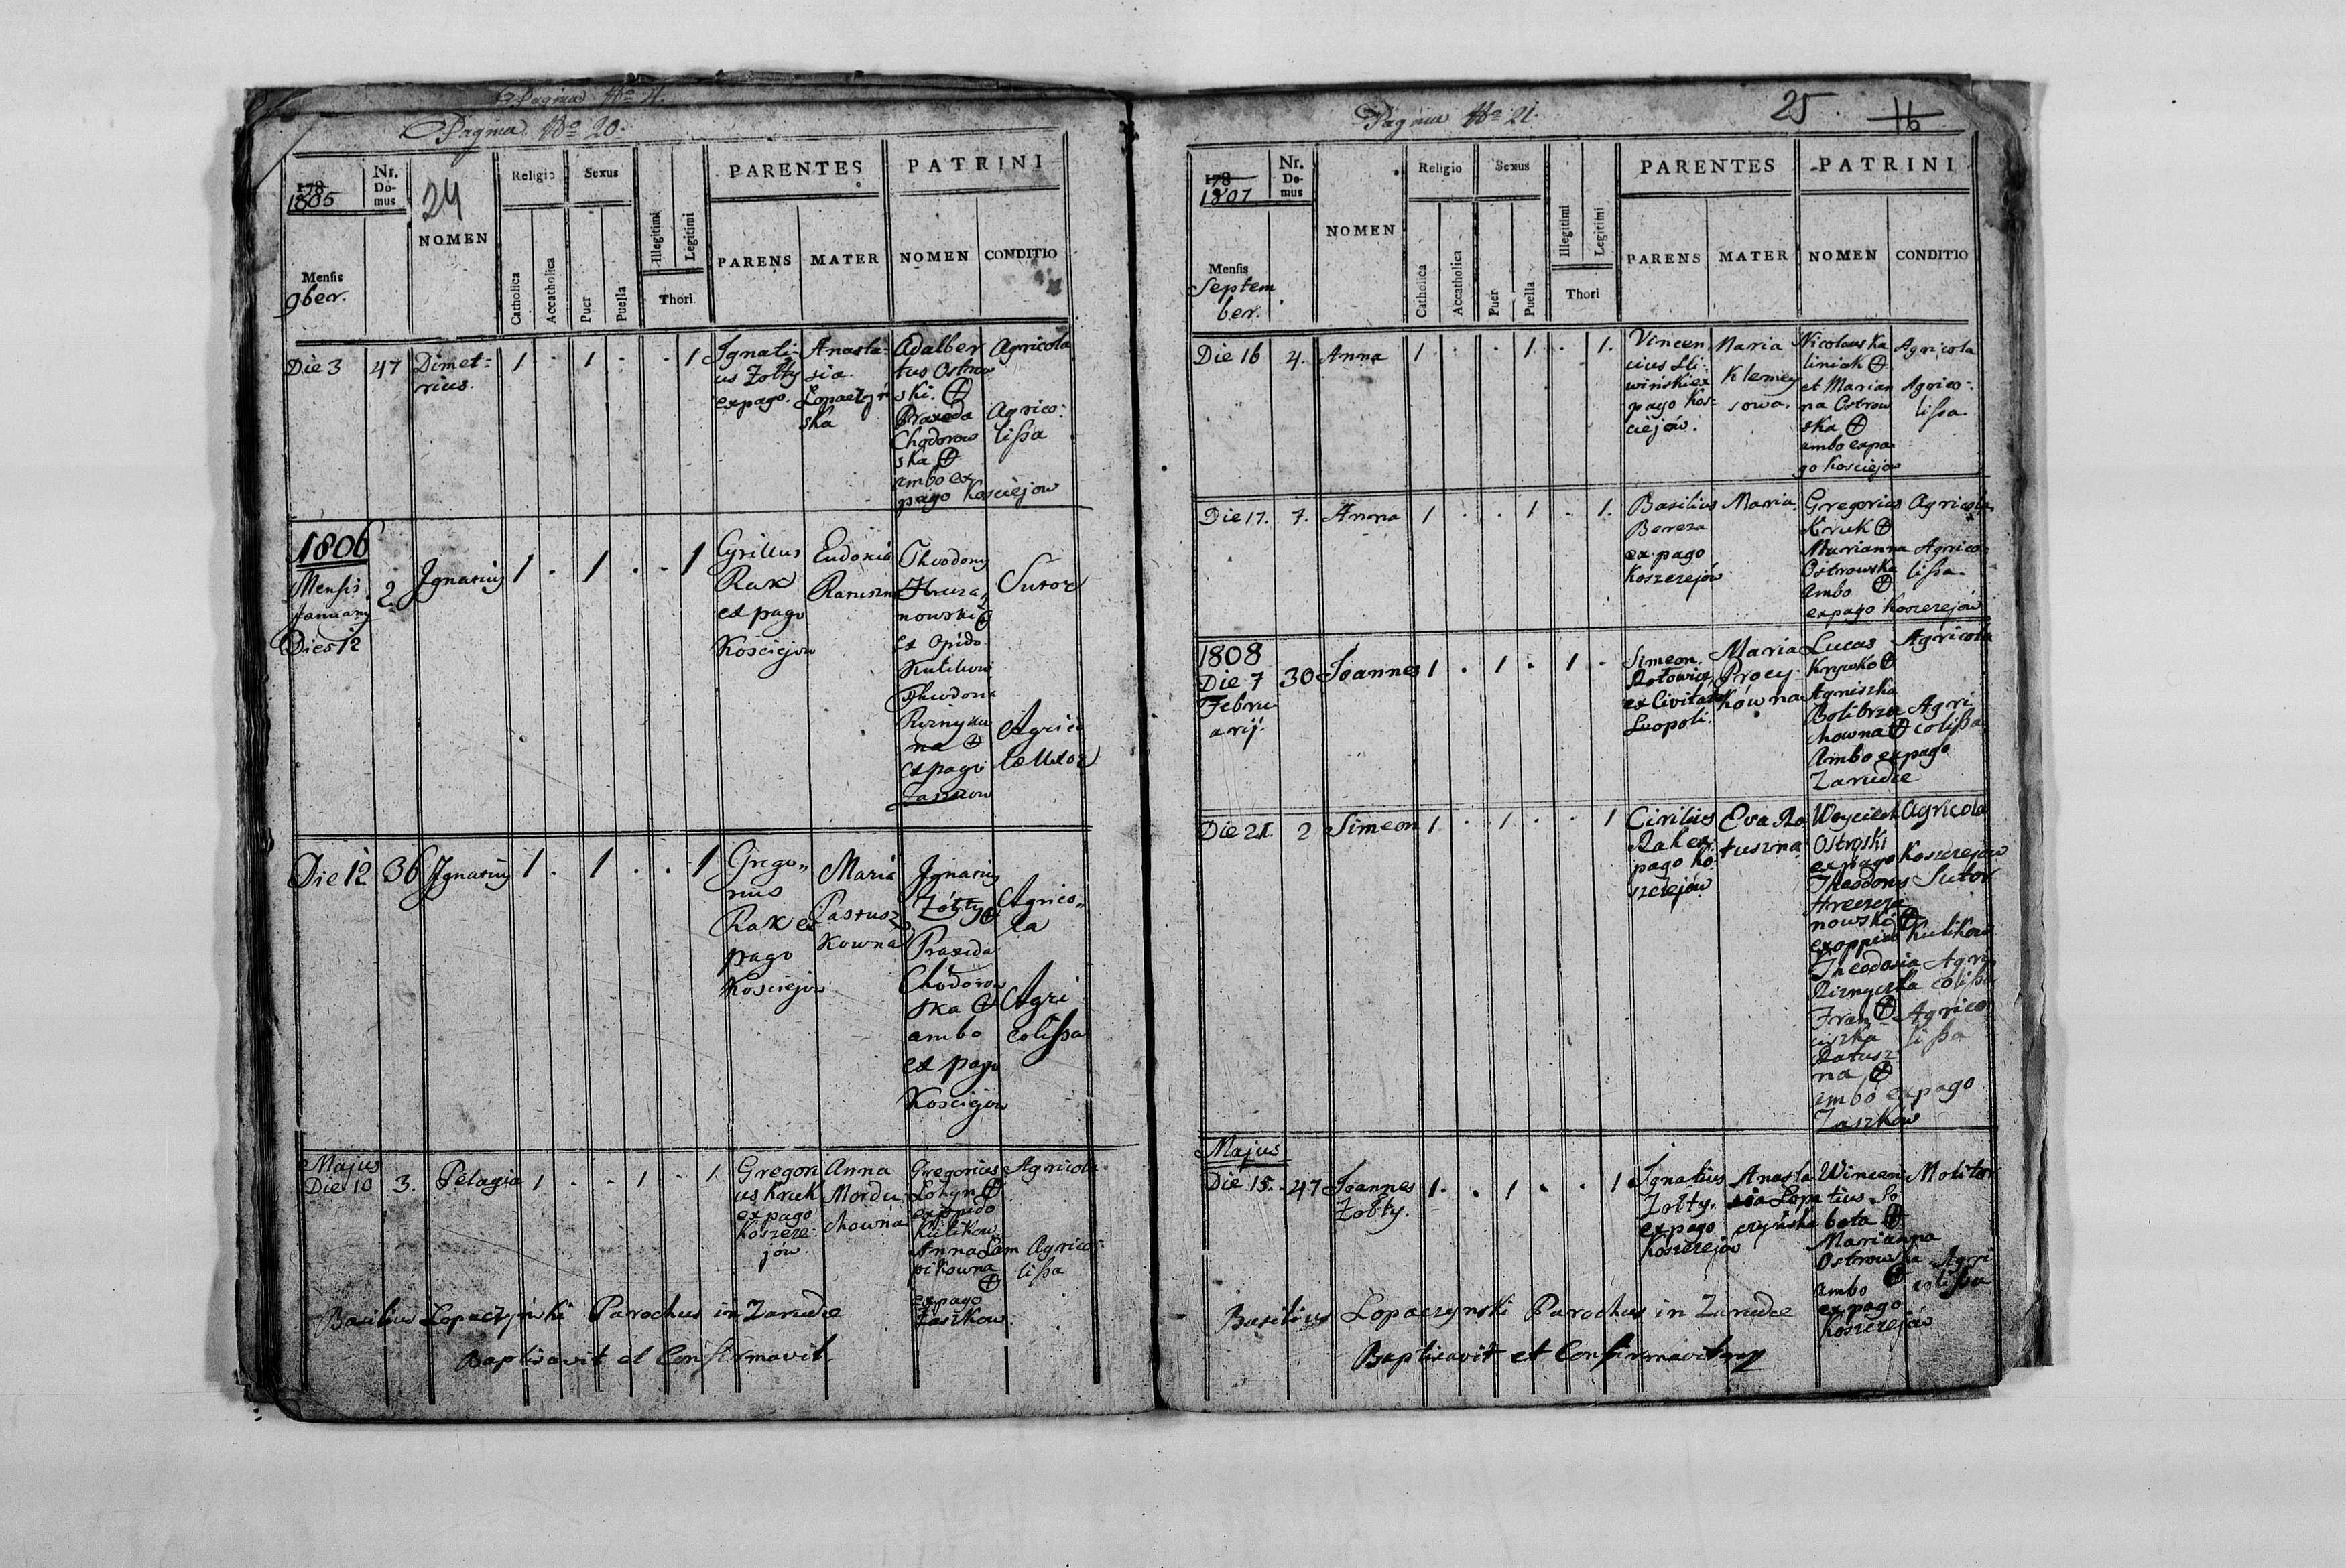 Pagina No 4.
Pagina No 20.
178
1805
Nr. Do-
mus
24
NOMEN
Religio
Sexus
Catholica
Accatholica
Puer
Puella
Illegitimi
Legitimi
Thori
PARENTES
PARENS
MATER
PATRINI
NOMEN
CONDITIO
Mensis
9ber.
Die 3
47
Dimet-
rius.
1 . 1 . . 1
Ignati-
us Zołty
ex pago.
Anasta-
sia
Lopaczyń
ska
Adalber
tus Ostrow
ski. ⊕
Praxeda
Chodorow
ska ⊕
ambo ex
pago Kosciejow
Agricola
Agrico-
lissa
1806
Mensis
January
Dies 12
2
Ignatius
1 . 1 . . 1
Cyrillus
Rak
ex pago
Kosciejow
Eudoxia
Theodorus
nowski ⊕
ex Opido
Kulikow
na ⊕
ex pago
Zaszkow
Sutor
Die 12
36
Ignatius
1 . 1 . . 1
Grego-
rius
Rak ex
pago
Kosciejow
Maria
Pastusz
kowna
Ignatius
Żółty ⊕
Praxeda
Chodorow
ska ⊕
ambo
ex pago
Kosciejow
Agrico-
la
Agri
colissa
Majus
Die 10
3.
Pelagia
1 . . 1 . 1
Gregori
us Kruk
ex pago
Koszeze-
jów.
Anna
Mordu
chowna
Gregorius
ex opido
Kulikow
Anna Lam
pikowna
⊕
ex pago
Zaszkow.
Agricola
Agrico-
lissa
Basilius Lopaczyński Parochus in Zarudce
Baptisavit et Confirmavit.
Pagina No 21.
25.
16
178
1807
Nr.
Do-
mus
NOMEN
Religio
Sexus
Catholica
Accatholica
Puer
Puella
Illegitimi
Legitimi
Thori
PARENTES
PARENS
MATER
PATRINI
NOMEN
CONDITIO
Mensis
Septem
ber.
Die 16
4.
Anna
1 . . 1 . 1.
Vincen
cius Sli-
wiński ex
pago Kos-
ciejów.
Maria
Klemey
sowa.
Nicolaus Ka
liniak ⊕
et Marian
na Ostrow
ska ⊕
ambo ex pa
go Kosciejow
Agricola
Agrico-
lissa
Die 17.
7.
Anna
1 . . 1 . 1.
Basilius
Bereza
ex pago
Koszezejów
Maria
Gregorius
Kruk ⊕
Marianna
Ostrowska
ambo ⊕
ex pago Koszezejów
Agricola
Agrico-
lissa
1808
Die 7
Febru
arij.
30
Joannes
1 . 1 . 1 .
Simeon
ex Civitate
Leopoli.
Maria
Procy-
kówna
Lucas
Krywko ⊕
Agniszka
Bolibrzu
chowna ⊕
Ambo ex pago
Zarudce
Agricola
Agri
colissa
Die 21
2
Simeon
1 . 1 . . 1
Cirilius
Rak ex
pago Ko-
szezejów
Eva Ra
tuszna
Woyciech
Ostroski
ex pago Koszezejow
Theodorus
nowski ⊕
ex oppido Kulikow
Theodosia
Riznyczka
Fran ⊕
ciszka
Ratusz
na ⊕
ambo ex pago
Zaszków
Agricola
Sutor
Agri
colissa
Agrico
lissa
Majus
Die 15.
47
Joannes
Zołty.
1 . 1 . . 1
Ignatius
Zołty.
ex pago
Koszezejów
Anasta
sia Lopa
czyńska
Wincen
tius So
bota ⊕
Marianna
Ostrowska
ambo ⊕
ex pago
Koszezejów
Molitor
Agri
colissa
Basilius Lopaczynski Parochus in Zarudce
Baptisavit et Confirmavit mp